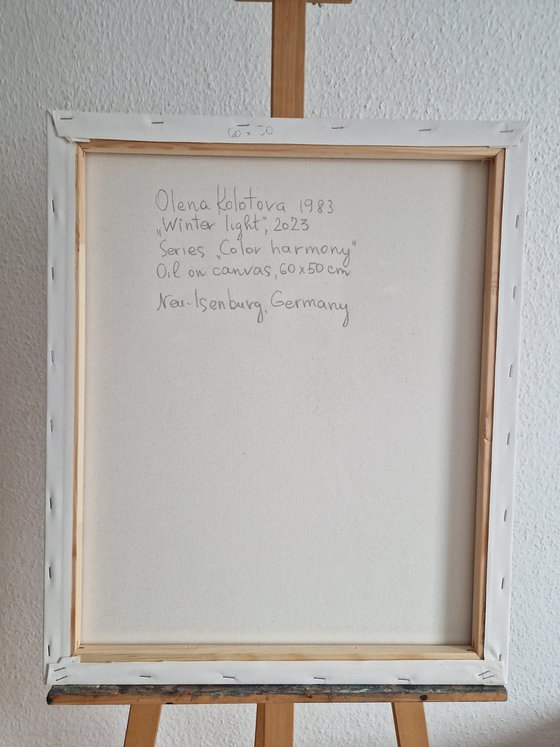 60 x 50
Olena Kolotova 1983
„Winter light", 2023
Series „Color harmony"
Oil on canvas, 60 x 50 cm
Neu-Isenburg, Germany